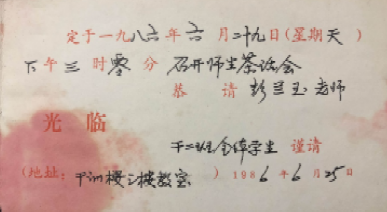 定于一九八六年六月二十九日(星期天)
下午三时零分召开师生茶话会
恭请彭兰玉老师
光临
干二班全体学生 谨请
(地址:干训楼三楼教室)1986年6月25日